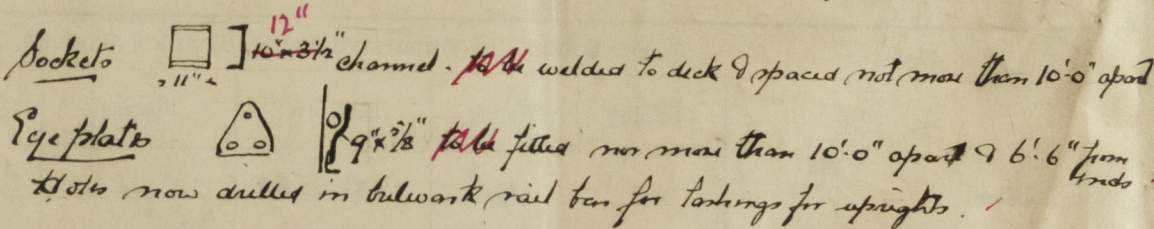 12"
Sockets ] 10" x 3½" channel. to be welded to deck & spaced not more than 10'-0" apart
, 11" ,
Eye plates 9" x 5/8" to be fitted nor more than 10'.0" apart & 6'.6" from ends
Holes now drilled in bulwark rail bar for lashings for uprights.